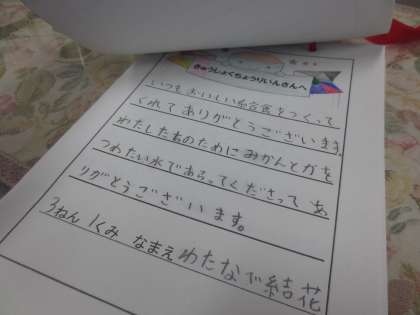 きゅうしょくちょうりいんさんへ
いつもおいしい給食をつくって
くれてありがとうございます。
わたしたちのためにみかんとかを
つめたい水であらってくださってあ
りがとうございます。
3ねん 1くみ なまえ わたなべ結花